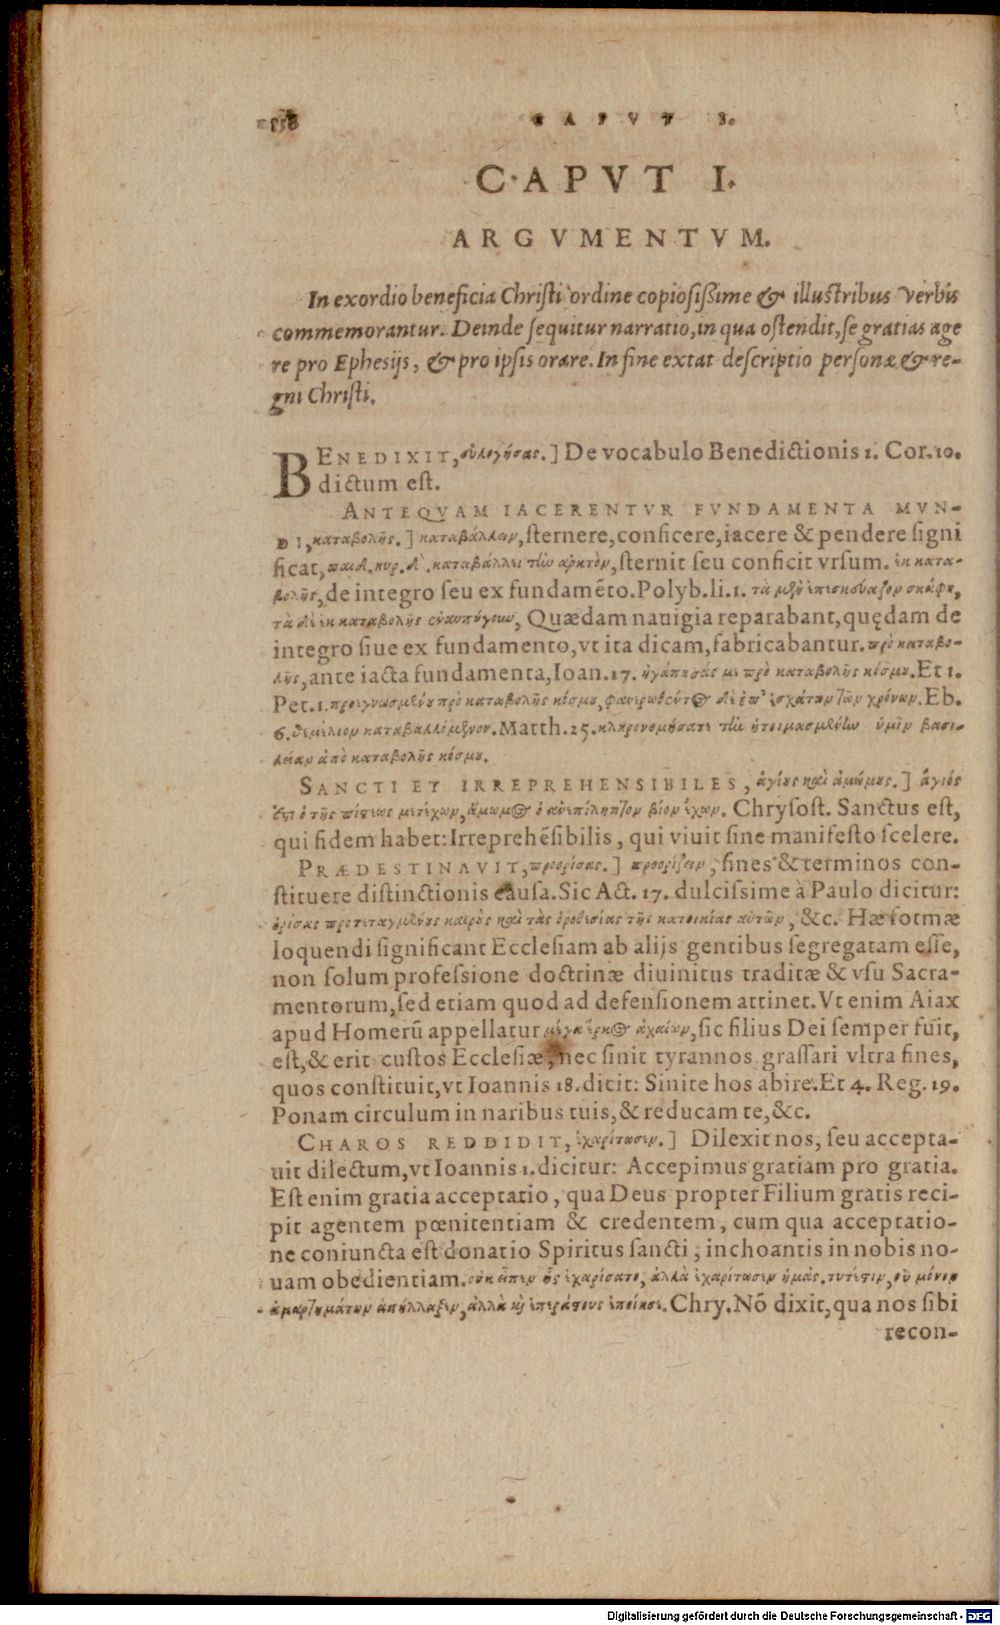 858 CAPVT I.
CAPVT I.
ARGVMENTVM.
In exordio beneficia Christi ordine copiosißime & illustribus verbis
commemorantur. Deinde sequitur narratio, in qua ostendit, se gratias age
re pro Ephesijs, & pro ipsis orare. In fine extat descriptio personæ & re-
gni Christi.
BENEDIXIT, εὐλογήσας.] De vocabulo Benedictionis 1. Cor. 10.
dictum est.
ANTEQVAM IACERENTVR FVNDAMENTA MVN-
DI, καταβολῆς.] καταβάλλειν, sternere, conficere, iacere & pendere signi
ficat, παιδ. κυρ. δ. καταβάλλει τὴν ἄρκτον, sternit seu conficit vrsum. ἐκ κατα-
βολῆς, de integro seu ex fundamẽto. Polyb. li. 1. τὰ μὲν ἐπισκεύαζον σκάφη,
τὰ δὲ ἐκ καταβολῆς ἐναυπήγουν, Quædam nauigia reparabant, quędam de
integro siue ex fundamento, vt ita dicam, fabricabantur. πρὸ καταβο-
λῆς, ante iacta fundamenta, Ioan. 17. ἠγάπησάς με πρὸ καταβολῆς κόσμου. Et 1.
Pet. 1. προεγνωσμένου πρὸ καταβολῆς κόσμου, φανερωθέντος δὲ ἐπ' ἐσχάτων τῶν χρόνων. Eb.
6. θεμέλιον καταβαλλόμενον. Matth. 25. κληρονομήσατε τὴν ἡτοιμασμένην ὑμῖν βασι-
λείαν ἀπὸ καταβολῆς κόσμου.
SANCTI ET IRREPREHENSIBILES, ἁγίους καὶ ἀμώμους.] ἅγιός
ἐστι ὁ τῆς πίστεως μετέχων, ἄμωμος ὁ ἀνεπίληπτον βίον ἔχων. Chrysost. Sanctus est,
qui fidem habet: Irreprehẽsibilis, qui viuit sine manifesto scelere.
PRÆDESTINAVIT, προορίσας.] προορίζειν, fines & terminos con-
stituere distinctionis causa. Sic Act. 17. dulcissime à Paulo dicitur:
ὁρίσας προτεταγμένους καιροὺς καὶ τὰς ὁροθεσίας τῆς κατοικίας αὐτῶν, &c. Hæ formæ
loquendi significant Ecclesiam ab alijs gentibus segregatam esse,
non solum professione doctrinæ diuinitus traditæ & vsu Sacra-
mentorum, sed etiam quod ad defensionem attinet. Vt enim Aiax
apud Homerũ appellatur μέγα ἕρκος ἀχαιῶν, sic filius Dei semper fuit,
est, & erit custos Ecclesiæ, nec sinit tyrannos grassari vltra fines,
quos constituit, vt Ioannis 18. dicit: Sinite hos abire. Et 4. Reg. 19.
Ponam circulum in naribus tuis, & reducam te, &c.
CHAROS REDDIDIT, ἐχαρίτωσεν.] Dilexit nos, seu accepta-
uit dilectum, vt Ioannis 1. dicitur: Accepimus gratiam pro gratia.
Est enim gratia acceptatio, qua Deus propter Filium gratis reci-
pit agentem pœnitentiam & credentem, cum qua acceptatio-
ne coniuncta est donatio Spiritus sancti, inchoantis in nobis no-
uam obedientiam. οὐκ εἶπεν ἧς ἐχαρίσατο, ἀλλὰ ἐχαρίτωσεν ἡμᾶς. τουτέστιν, οὐ μόνον
ἁμαρτημάτων ἀπήλλαξεν, ἀλλὰ καὶ ἐπεράστους ἐποίησε. Chry. Nõ dixit, qua nos sibi
recon-
Digitalisierung gefördert durch die Deutsche Forschungsgemeinschaft - DFG